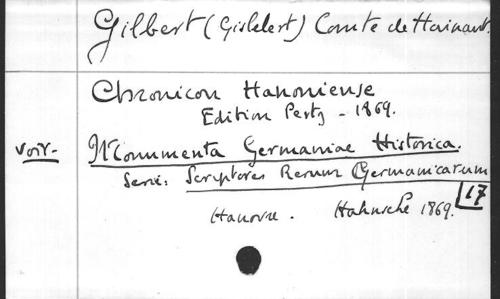 Gilbert (Gislebert) Comte de Hainaut.
Chronicon Hanoniense
Edition Pertz - 1869.
voir- Monumenta Germaniae Historica.
Serie: Scriptores Rerum Germanicarum
17
Hanovre. Hahnsche 1869.